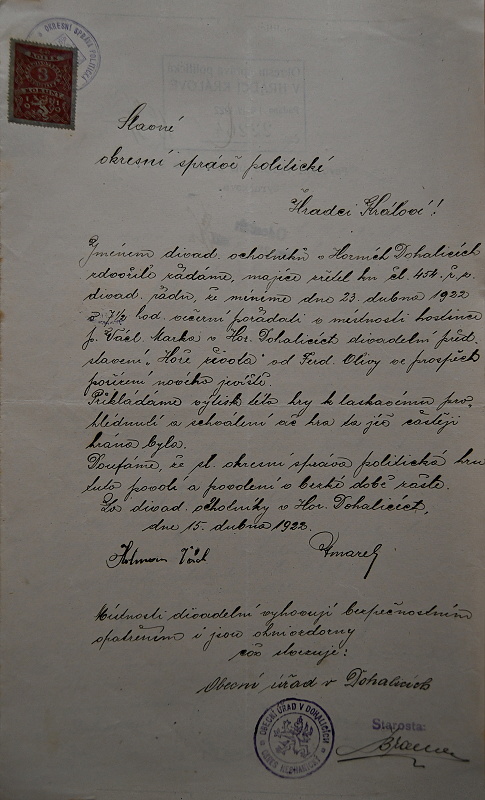 OKRESNÍ SPRÁVA POLITICKÁ
3
Slavné
okresní správě politické
Hradci Králové!
Jménem divad. ochotníků v Horních Dohalicích
zdvořile žádáme, majíce zřetel ku čl. 454. ř.
divad. řádu, že míníme dne 23. dubna 1922
o 7½ hod. večerní pořádati v místnosti hostince
p. Václ. Marka v Hor. Dohalicích divadelní před-
stavení „Hoře života" od Ferd. Olivy ve prospěch
pořízení nového jeviště.
Přikládáme výtisk této hry k laskavému pro-
hlédnutí a schválení ač hra ta již častěji
hrána byla.
Doufáme, že sl. okresní správa politická hru
tuto povolí a povolení v brzké době zašle.
Za divad. ochotníky v Hor. Dohalicích,
dne 15. dubna 1922.
Místnosti divadelní vyhovují bezpečnostním
opatřením i jsou ohnivzdorny
což stvrzuje:
Obecní úřad v Dohalicích
OBECNÍ ÚŘAD V DOHALICÍCH
Starosta: